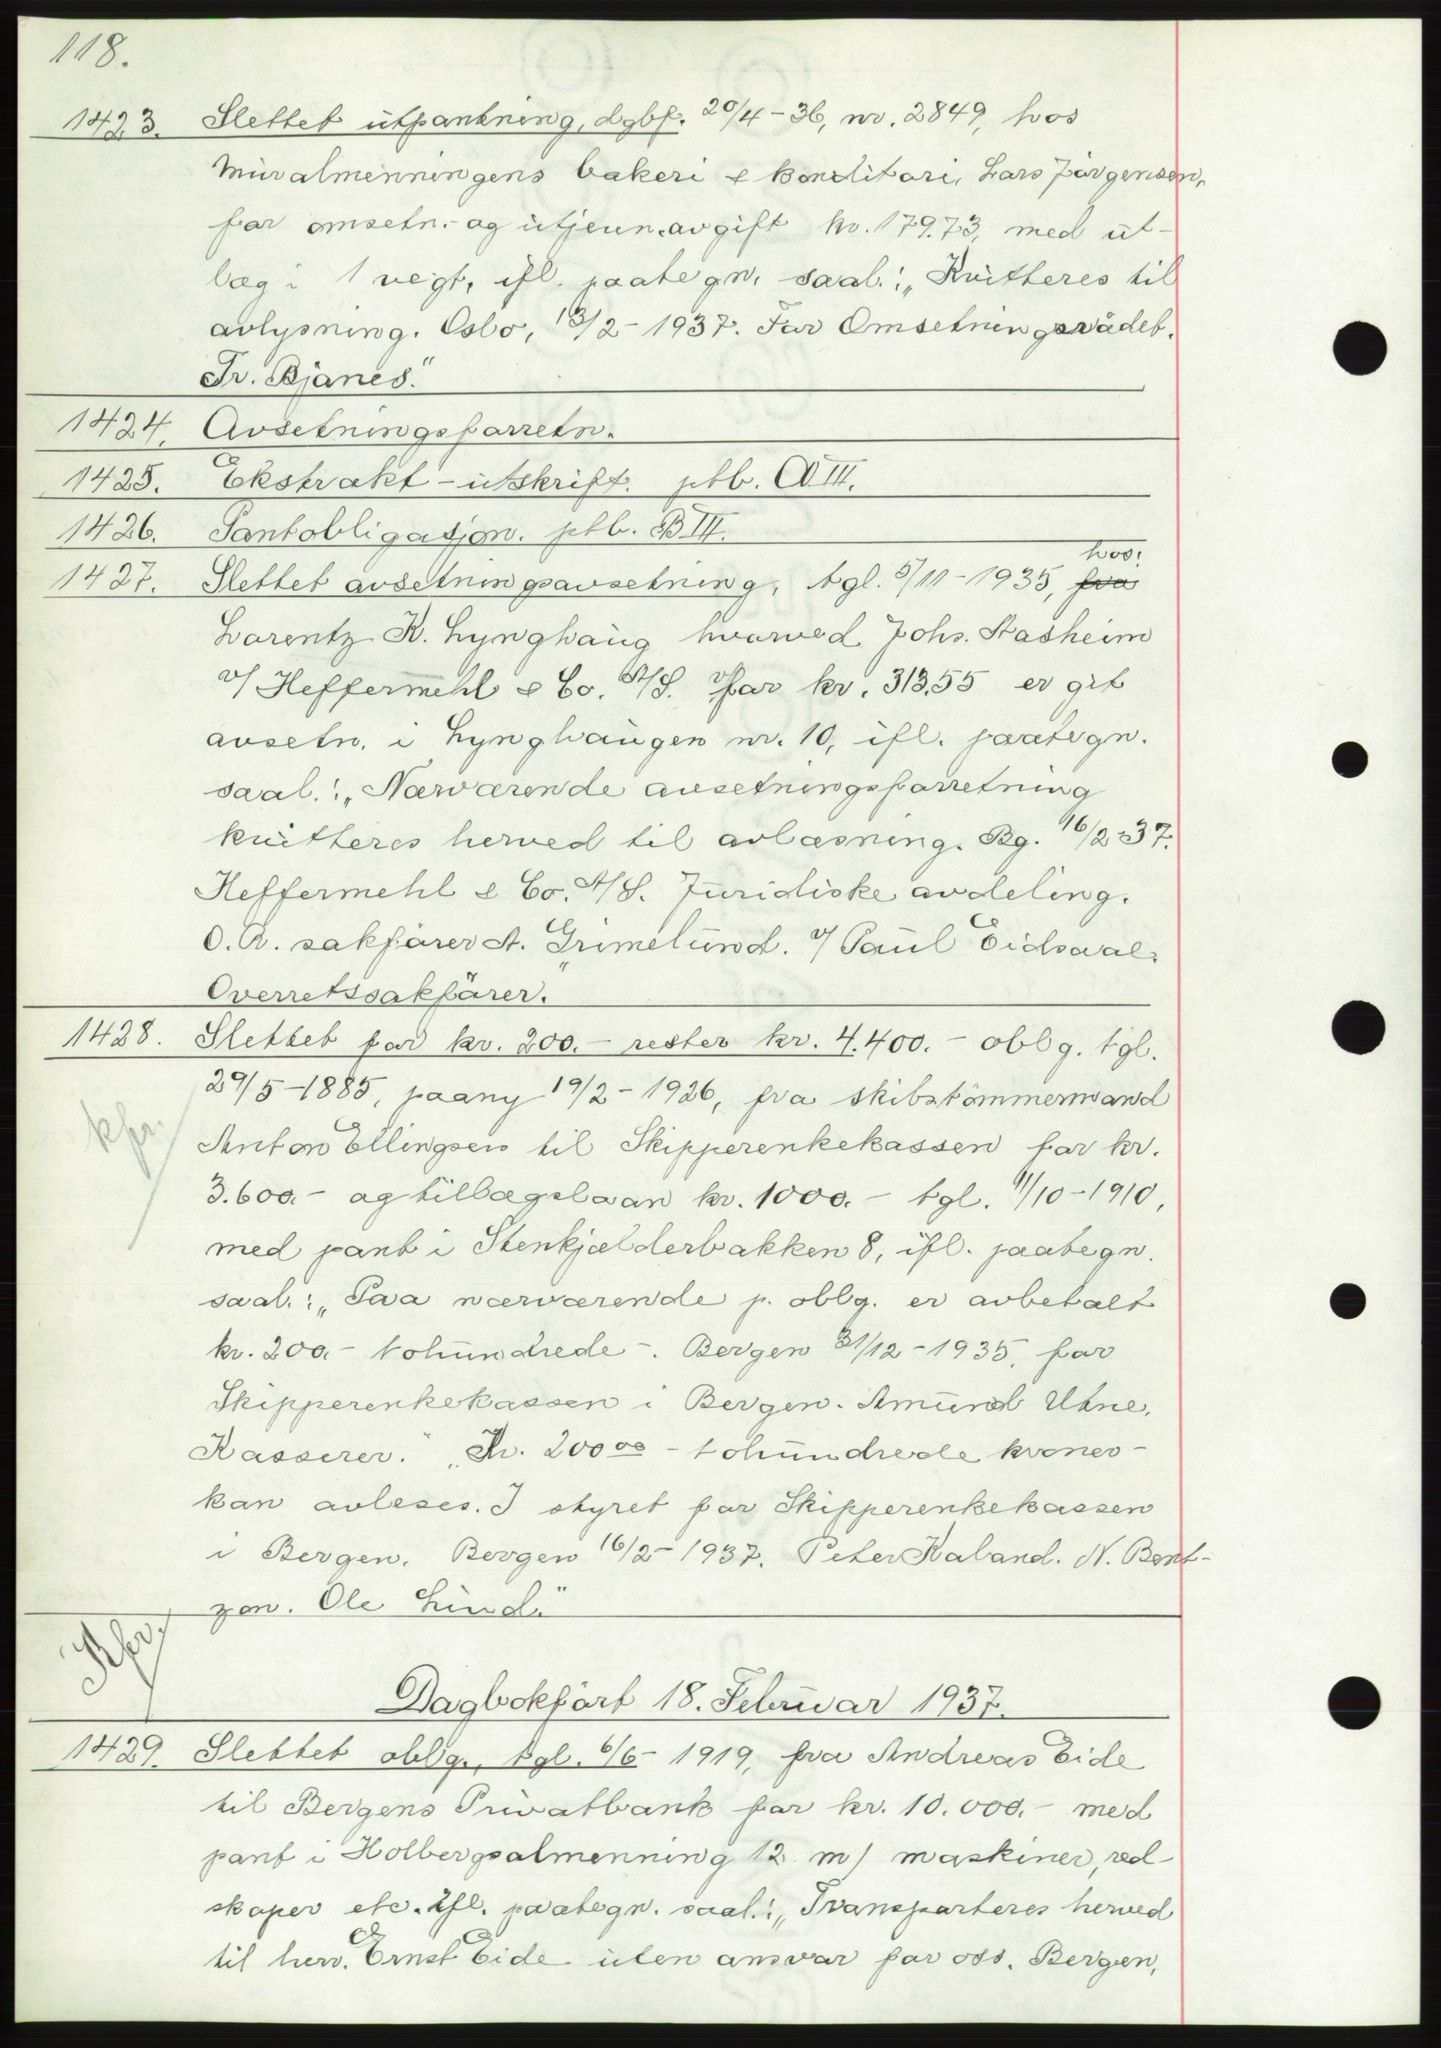 118.
1423. Slettet utpantning, dgbf. 20/4-36, nr. 2849, hos
Muralmenningens bakeri & konditori, Lars Jørgensen,
for omsetn.- og utjevn.avgift kr. 179.73, med ut-
læg i 1 vegt, ifl. paategn. saal.: „Kvitteres til
avlysning. Oslo, 13/2-1937. For Omsetningsrådet.
Tr. Bjanes."
1424. Avsetningsforretn.
1425. Ekstrakt-utskrift. ptb. A III.
1426. Pantobligasjon. ptb. B III.
hos:
1427. Slettet avsetningsavsetning, tgl. 5/11-1935, fra
Lorentz K. Lynghaug hvorved Johs. Stasheim
v/ Heffermehl & Co. A/S. for kr. 313.55 er git
avsetn. i Lynghaugen nr. 10, ifl. paategn.
saal.: „Nærværende avsetningsforretning
kvitteres herved til avlæsning. Bg. 16/2-37.
Heffermehl & Co. A/S. Juridiske avdeling.
O.R. sakfører A. Grimelund. v/ Paul Eidsvaal.
Overretssakfører."
1428. Slettet for kr. 200.- rester kr. 4.400.- oblg. tgl.
29/5-1885, paany 19/2-1926, fra skibstømmermand
kfr.
Anton Ellingsen til Skipperenkekassen for kr.
3.600.- og tillægslaan kr. 1000.- tgl. 11/10-1910,
med pant i Stenkjælderbakken 8, ifl. paategn.
saal.: „Paa nærværende p. oblg. er avbetalt
kr. 200.- tohundrede -. Bergen 31/12-1935, for
Skipperenkekassen i Bergen. Amund Utne.
Kasserer." „Kr. 200 00 - tohundrede kroner -
kan avleses. I styret for Skipperenkekassen
i Bergen. Bergen 16/2-1937. Peter Kaland. N. Bent-
zon. Ole Lind."
Kfr,
Dagbokført 18. Februar 1937.
1429. Slettet oblg., tgl. 6/6-1919, fra Andreas Eide
til Bergens Privatbank for kr. 10.000.- med
pant i Holbergsalmenning 12 m/ maskiner, red-
skaper etc. Ifl. paategn. saal.: „Transporteres herved
til herr. Ernst Eide uten ansvar for oss. Bergen,